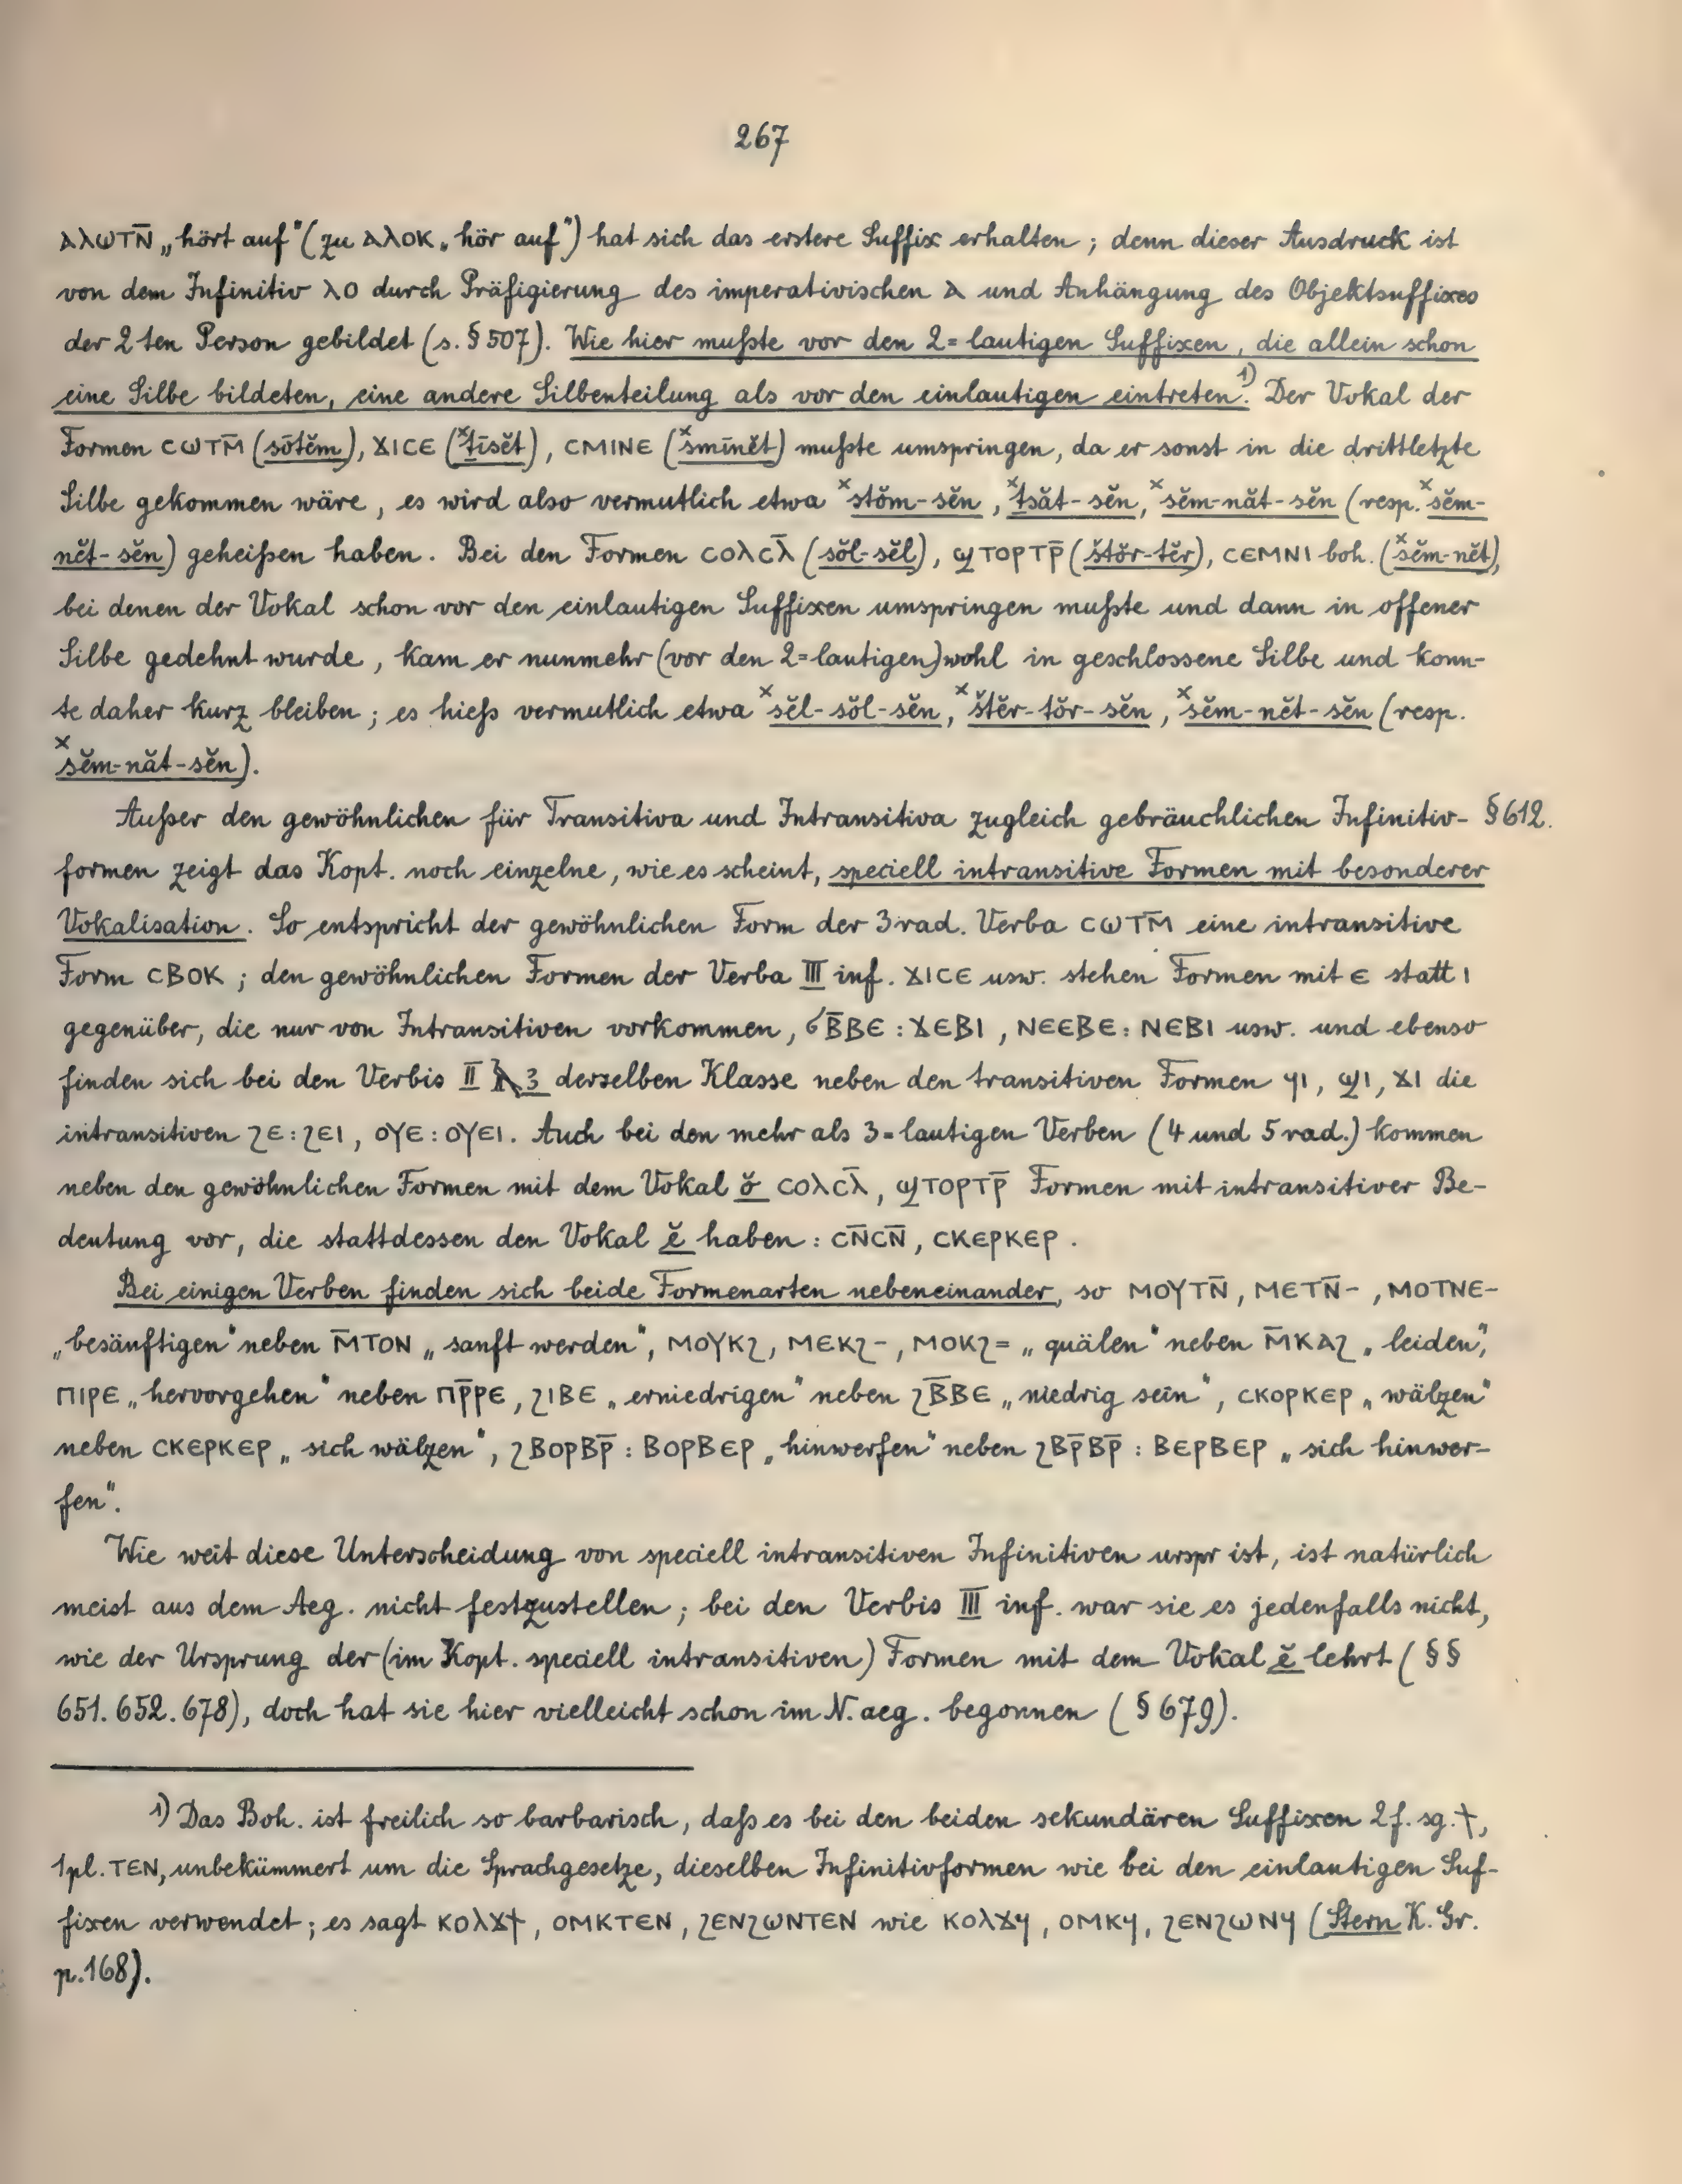 267
ⲁⲗⲱⲧⲛ̄ „hört auf" (zu ⲁⲗⲟⲕ „hör auf") hat sich das erstere Suffix erhalten; denn dieser Ausdruck ist
von dem Infinitiv ⲗⲟ durch Präfigierung des imperativischen ⲁ und Anhängung des Objektsuffixes
der 2ten Person gebildet (s. § 507). Wie hier mußte vor den 2=lautigen Suffixen, die allein schon
eine Silbe bildeten, eine andere Silbenteilung als vor den einlautigen eintreten.¹⁾ Der Vokal der
Formen ⲥⲱⲧⲙ̄ (sōtĕm), ϫⲓⲥⲉ (ˣṯīsĕt), ⲥⲙⲓⲛⲉ (ˣsmīnĕt) mußte umspringen, da er sonst in die drittletzte
Silbe gekommen wäre, es wird also vermutlich etwa ˣstŏm-sĕn, ˣṯsăt-sĕn, ˣsĕm-năt-sĕn (resp. ˣsĕm-
nĕt-sĕn) geheißen haben. Bei den Formen ⲥⲟⲗⲥⲗ̄ (sŏl-sĕl), ϣⲧⲟⲣⲧⲣ̄ (štŏr-tĕr), ⲥⲉⲙⲛⲓ boh. (ˣsĕm-nĕt),
bei denen der Vokal schon vor den einlautigen Suffixen umspringen mußte und dann in offener
Silbe gedehnt wurde, kam er nunmehr (vor den 2=lautigen) wohl in geschlossene Silbe und konn-
te daher kurz bleiben; es hieß vermutlich etwa ˣsĕl-sŏl-sĕn, ˣštĕr-tŏr-sĕn, ˣsĕm-nĕt-sĕn (resp.
ˣsĕm-năt-sĕn).
Außer den gewöhnlichen für Transitiva und Intransitiva zugleich gebräuchlichen Infinitiv- § 612.
formen zeigt das Kopt. noch einzelne, wie es scheint, speciell intransitive Formen mit besonderer
Vokalisation. So entspricht der gewöhnlichen Form der 3rad. Verba ⲥⲱⲧⲙ̄ eine intransitive
Form ⲥⲃⲟⲕ; den gewöhnlichen Formen der Verba III inf. ϫⲓⲥⲉ usw. stehen Formen mit ⲉ statt ⲓ
gegenüber, die nur von Intransitiven vorkommen, ϭⲃ̄ⲃⲉ : ϫⲉⲃⲓ, ⲛⲉⲉⲃⲉ : ⲛⲉⲃⲓ usw. und ebenso
finden sich bei den Verbis II 3 derselben Klasse neben den transitiven Formen ϥⲓ, ϣⲓ, ϫⲓ die
intransitiven ϩⲉ : ϩⲉⲓ, ⲟⲩⲉ : ⲟⲩⲉⲓ. Auch bei den mehr als 3=lautigen Verben (4 und 5 rad.) kommen
neben den gewöhnlichen Formen mit dem Vokal ŏ ⲥⲟⲗⲥⲗ̄, ϣⲧⲟⲣⲧⲣ̄ Formen mit intransitiver Be-
deutung vor, die stattdessen den Vokal ĕ haben: ⲥⲛ̄ⲥⲛ̄, ⲥⲕⲉⲣⲕⲉⲣ.
Bei einigen Verben finden sich beide Formenarten nebeneinander, so ⲙⲟⲩⲧⲛ̄, ⲙⲉⲧⲛ̄-, ⲙⲟⲧⲛⲉ-
„besänftigen" neben ⲙ̄ⲧⲟⲛ „sanft werden", ⲙⲟⲩⲕϩ, ⲙⲉⲕϩ-, ⲙⲟⲕϩ= „quälen" neben ⲙ̄ⲕⲁϩ „leiden",
ⲡⲓⲣⲉ „hervorgehen" neben ⲡⲣ̄ⲣⲉ, ϩⲓⲃⲉ „erniedrigen" neben ϩⲃ̄ⲃⲉ „niedrig sein", ⲥⲕⲟⲣⲕⲉⲣ „wälzen"
neben ⲥⲕⲉⲣⲕⲉⲣ „sich wälzen", ϩⲃⲟⲣⲃⲣ̄ : ⲃⲟⲣⲃⲉⲣ „hinwerfen" neben ϩⲃⲣ̄ⲃⲣ̄ : ⲃⲉⲣⲃⲉⲣ „sich hinwer-
fen".
Wie weit diese Unterscheidung von speciell intransitiven Infinitiven urspr ist, ist natürlich
meist aus dem Aeg. nicht festzustellen; bei den Verbis III inf. war sie es jedenfalls nicht,
wie der Ursprung der (im Kopt. speciell intransitiven) Formen mit dem Vokal ĕ lehrt (§§
651. 652. 678), doch hat sie hier vielleicht schon im N. aeg. begonnen (§ 679).
1) Das Boh. ist freilich so barbarisch, daß es bei den beiden sekundären Suffixen 2 f. sg. ϯ,
1 pl. ⲧⲉⲛ, unbekümmert um die Sprachgesetze, dieselben Infinitivformen wie bei den einlautigen Suf-
fixen verwendet; es sagt ⲕⲟⲗϫϯ, ⲟⲙⲕⲧⲉⲛ, ϩⲉⲛϩⲱⲛⲧⲉⲛ wie ⲕⲟⲗϫϥ, ⲟⲙⲕϥ, ϩⲉⲛϩⲱⲛϥ (Stern K. Gr.
p. 168).